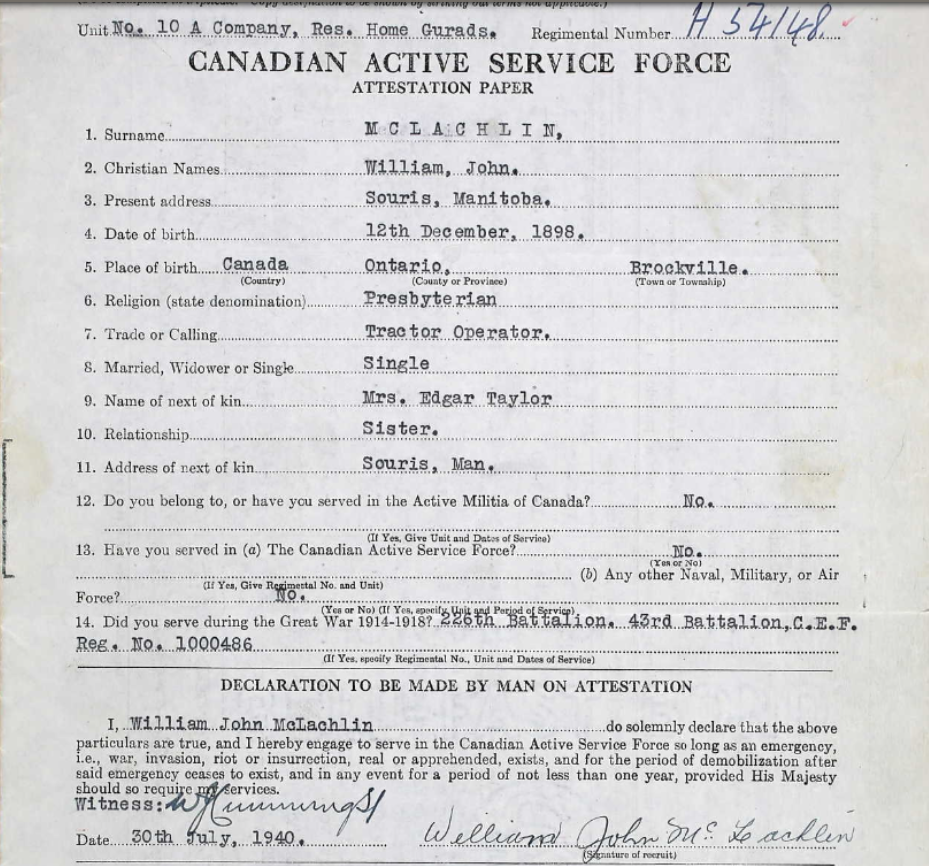 Unit No. 10 A Company, Res. Home Gurads. Regimental Number H 54148.
CANADIAN ACTIVE SERVICE FORCE
ATTESTATION PAPER
1. Surname M C L A C H L I N,
2. Christian Names William, John.
3. Present address Souris, Manitoba.
4. Date of birth 12th December, 1898.
5. Place of birth Canada Ontario, Brockville.
(Country) (County or Province) (Town or Township)
6. Religion (state denomination) Presbyterian
7. Trade or Calling Tractor Operator.
8. Married, Widower or Single Single
9. Name of next of kin Mrs. Edgar Taylor
10. Relationship Sister.
11. Address of next of kin Souris, Man.
12. Do you belong to, or have you served in the Active Militia of Canada? No.
(If Yes, Give Unit and Dates of Service)
13. Have you served in (a) The Canadian Active Service Force? No.
(Yes or No)
(b) Any other Naval, Military, or Air
(If Yes, Give Regimental No. and Unit)
Force? No.
(Yes or No) (If Yes, specify Unit and Period of Service)
14. Did you serve during the Great War 1914-1918? 226th Battalion. 43rd Battalion, C.E.F.
Reg. No. 1000486
(If Yes, specify Regimental No., Unit and Dates of Service)
DECLARATION TO BE MADE BY MAN ON ATTESTATION
I, William John McLachlin do solemnly declare that the above
particulars are true, and I hereby engage to serve in the Canadian Active Service Force so long as an emergency,
i.e., war, invasion, riot or insurrection, real or apprehended, exists, and for the period of demobilization after
said emergency ceases to exist, and in any event for a period of not less than one year, provided His Majesty
should so require my services.
Witness: W Cummings
Date 30th July, 1940. William John McLachlin
(Signature of recruit)